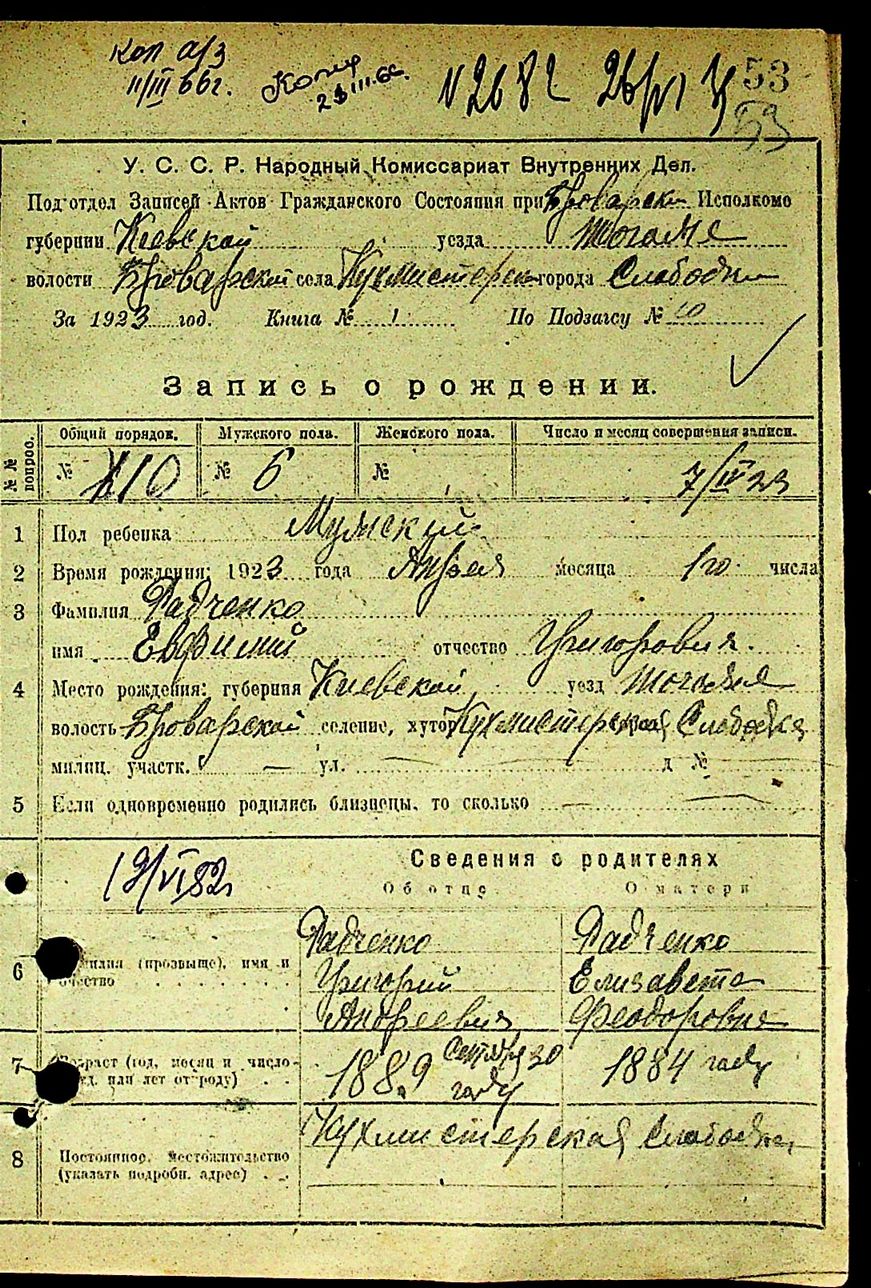 Коп а/з
11/III 66г.
Копия
23 III.66.
N 2682 26/VI
53
53
У. С. С. Р. Народный Комиссариат Внутренних Дел.
Под'отдел Записей Актов Гражданского Состояния при Броварск Исполкомо
губернии Киевской уезда тогоже
волости Броварской села Кухмистерск города Слободки
За 1923 год. Книга № 1 По Подзагсу № 10
Запись о рождении.
№ № вопрос. Общий порядок. Мужского пола. Женского пола. Число и месяц совершения записи.
№ 10 № 6 № 7/IV 23
1 Пол ребенка Мужский
2 Время рождения: 1923 года Апреля месяца 1го числа
3 Фамилия Радченко
имя Евфимий отчество Григорович.
4 Место рождения: губерния Киевской уезд тогоже
волость Броварской селение, хутор Кухмистерская Слободка
милиц. участк. — ул. — д №
5 Если одновременно родились близнецы, то сколько —
19/VI 82г Сведения о родителях
Об отце О матери
Радченко Радченко
6 фамилия (прозвыще), имя и Григорий Елизавета
отчество Андреевич Феодоровна
7 Возраст (год, месяц и число 1889 Сентября 30 году 1884 году
или лет от роду)
Кухмистерская Слободка
8 Постоянное местожительство
(указать подробн. адрес)